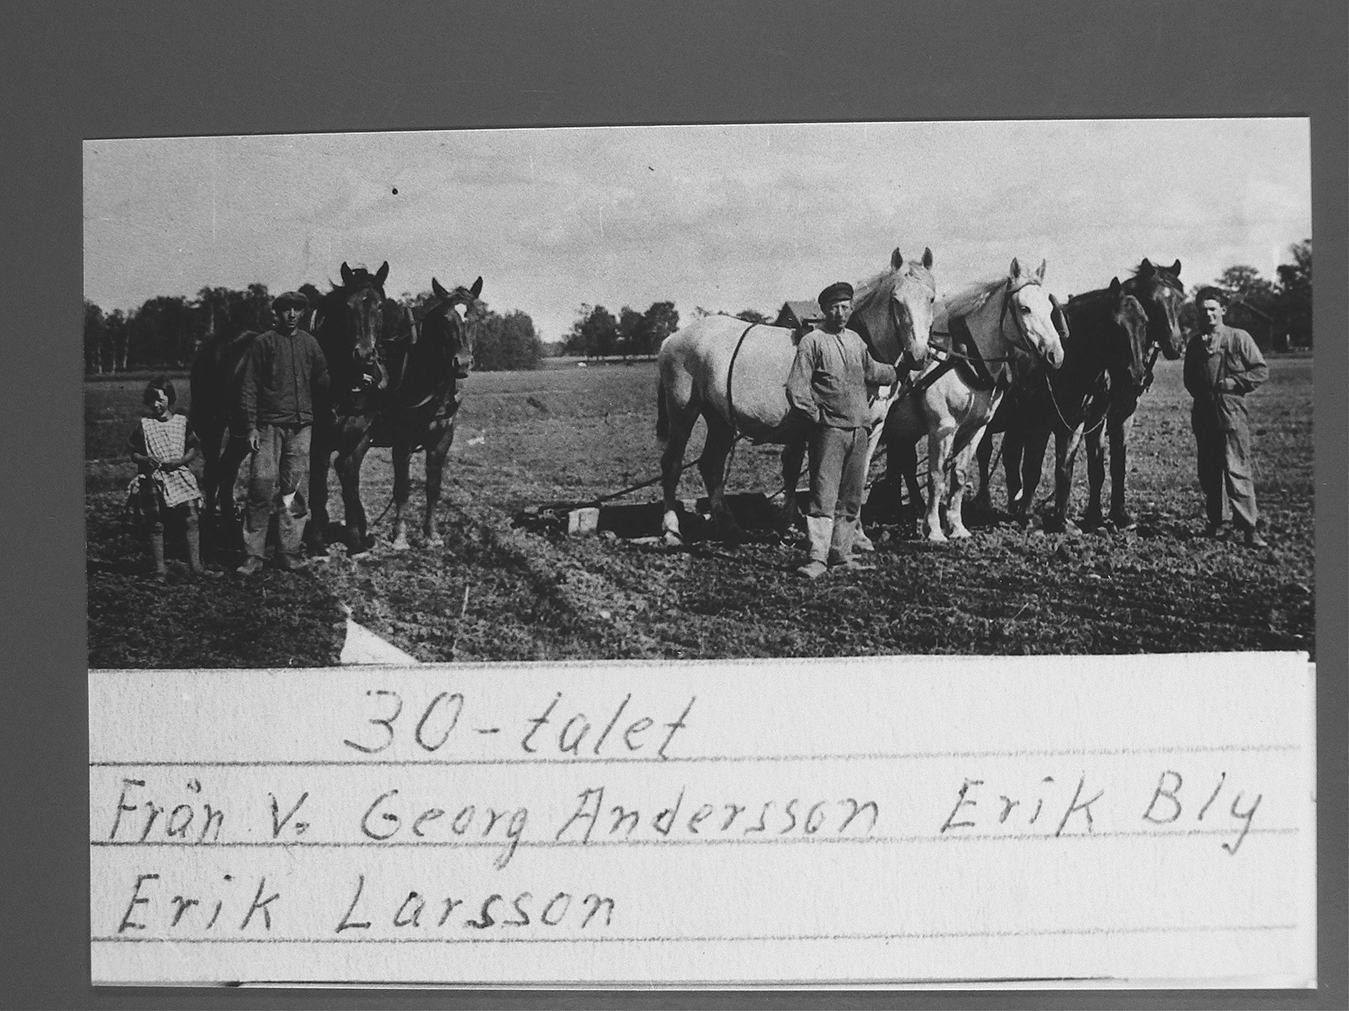 30-talet
Från V. Georg Andersson Erik Bly
Erik Larsson